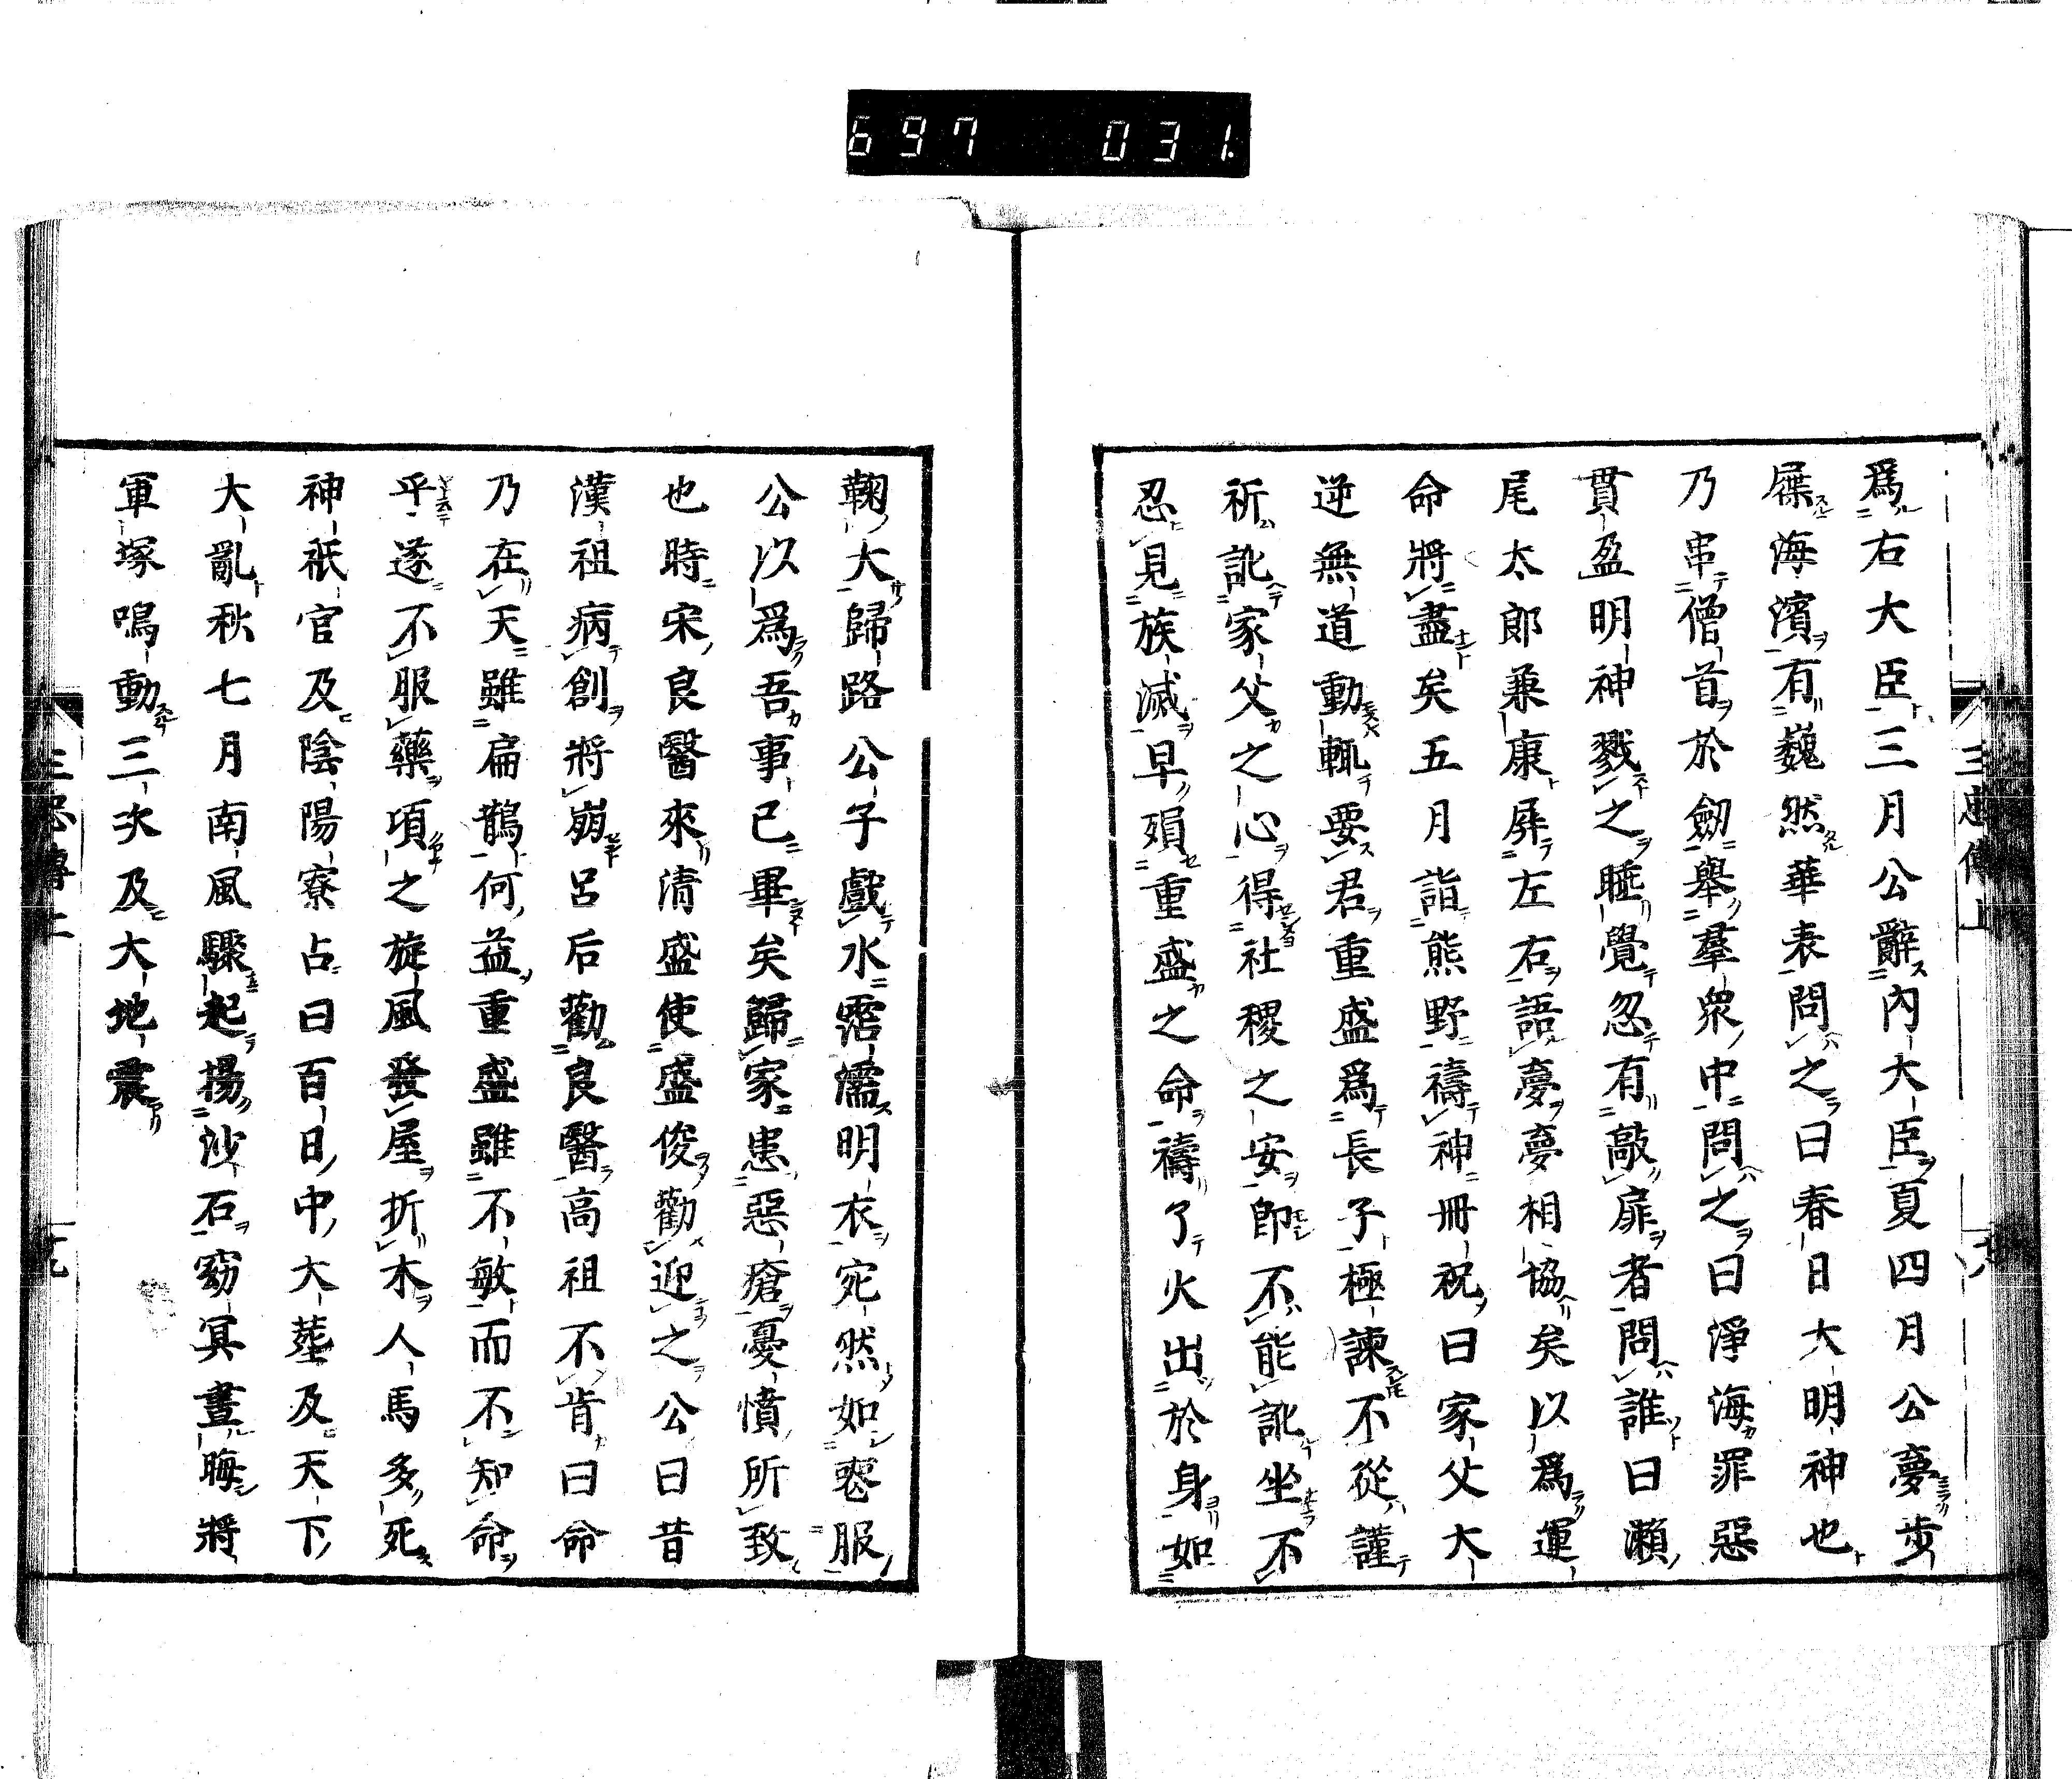 697 031
爲右大臣三月公辭內大臣夏四月公夢步
屧海濱有巍然華表問之曰春日大明神也
乃串僧首於劒舉羣衆中問之曰淨海罪惡
貫盈明神戮之睡覺忽有敲扉者問誰曰瀨
尾太郎兼康屛左右語夢夢相協矣以爲運
命將盡矣五月詣熊野禱神冊祝曰家父大
逆無道動輒要君重盛爲長子極諫不從謹
祈訛家父之心得社稷之安卽不能訛坐不
忍見族滅早殞重盛之命禱了火出於身如
鞠大歸路公子戲水霑濡明衣宛然如服
公以爲吾事已畢矣歸家患惡瘡憂憤所致
也時宋良醫來清盛使盛俊勸迎之公曰昔
漢祖病創將崩呂后勸良醫高祖不肯曰命
乃在天雖扁鵲何益重盛雖不敏而不知命
乎遂不服藥項之旋風發屋折木人馬多死
神祇官及陰陽寮占曰百日中大葬及天下
大亂秋七月南風驟起揚沙石窈冥晝晦將
軍塚鳴動三次及大地震